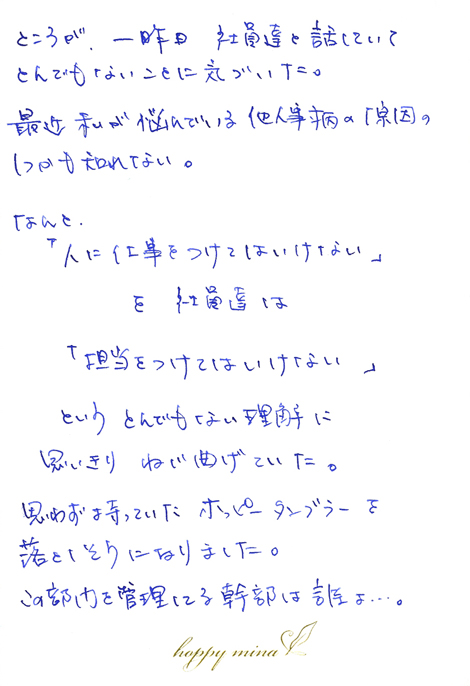 ところが、一昨日 社員達と話していて
とんでもないことに気づいた。
最近私が悩んでいる他人事病の原因の
1つかも知れない。
なんと、
「人に仕事をつけてはいけない」
を社員達は
「担当をつけてはいけない」
という とんでもない理解に
思いきり ねじ曲げていた。
思わず持っていた ホッピータンブラーを
落としそうになりました。
この部内を管理してる幹部は誰よ…。
hoppy mina